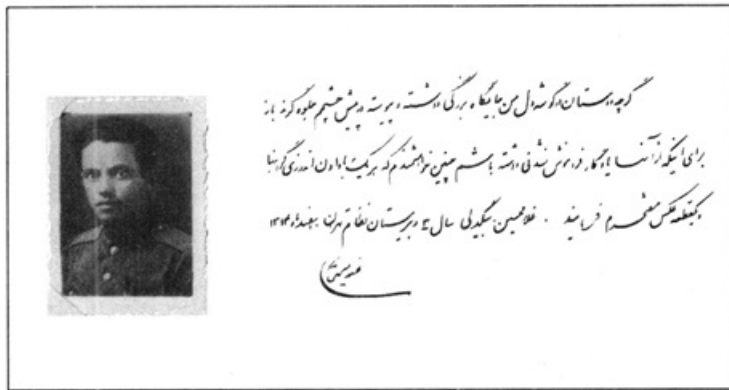 گرچه دوستان در گوشه دل من جایگاه بزرگی داشته و پیوسته در پیش چشمم جلوه گرند باز
برای اینکه از آنها یادگار فراموش نشدنی داشته باشم چنین خواهشمندم که هر یک با دادن اندرزی گرانبها
و یکقطعه عکس مفتخرم فرمایند . غلامحسین بیگدلی سال ۵ دبیرستان نظام تهران اسفند ماه ۱۳۱۴